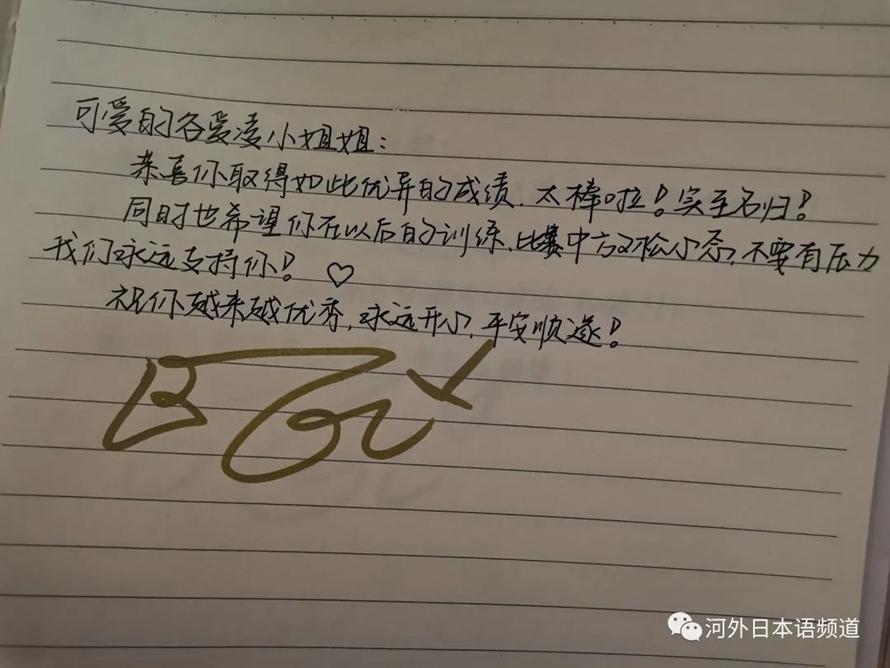 可爱的谷爱凌小姐姐：
恭喜你取得如此优异的成绩，太棒啦！实至名归！
同时也希望你在以后的训练、比赛中放松心态，不要有压力
我们永远支持你！♡
祝你越来越优秀，永远开心，平安顺遂！
河外日本语频道